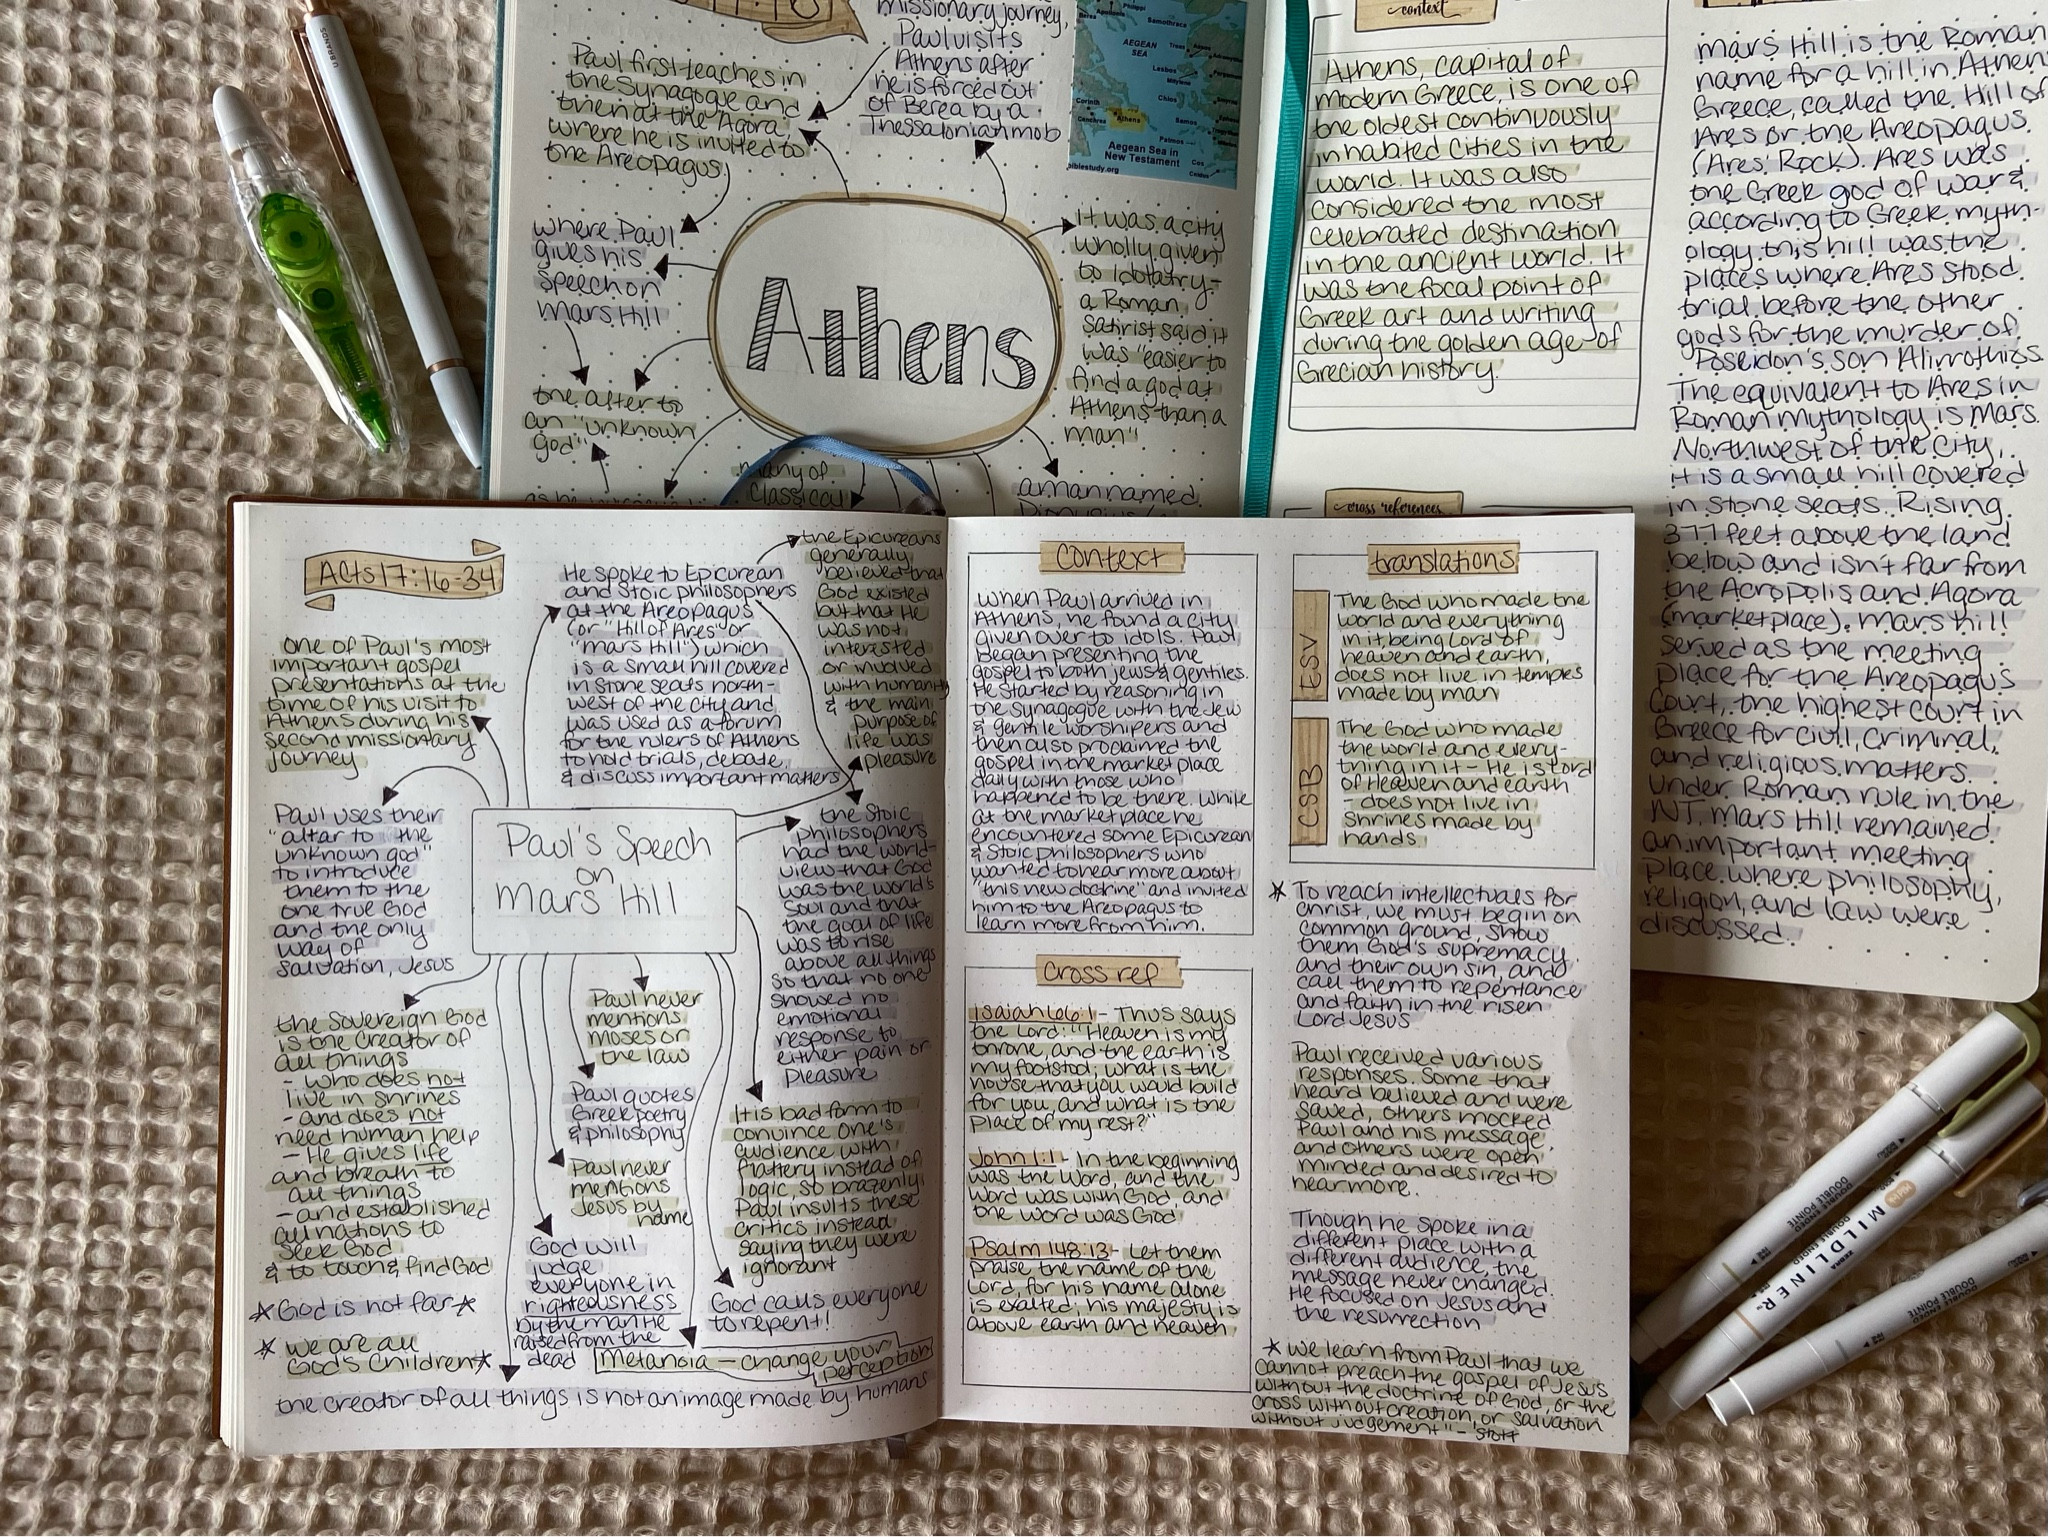 missionary journey,
Paul visits
Athens after
he is forced out
of Berea by a
Thessalonian mob
Paul first teaches in
the Synagogue and
then at the Agora,
where he is invited to
the Areopagus
where Paul
gives his
speech on
Mars Hill
"unknown
god"
Athens
It was a city
wholly given
to Idolatry-
a Roman
Satirist said it
was "easier to
find a god at
Athens than a
man"
many of
Classical
a man named
Philippi
Samothracia
AEGEAN
SEA
Troas
Assos
Lesbos
Mitylene
Chios
Corinth
Athens
Cenchrea
Samos
Patmos
Cos
Cnidus
Aegean Sea in
New Testament
biblestudy.org
context
Athens, capital of
modern Greece, is one of
the oldest continuously
inhabited cities in the
world. It was also
considered the most
celebrated destination
in the ancient world. It
was the focal point of
Greek art and writing
during the golden age of
Grecian history.
cross references
Mars Hill is the Roman
name for a hill in Athens
Greece, called the Hill of
Ares or the Areopagus
(Ares' Rock). Ares was
the Greek god of war &
according to Greek myth-
ology this hill was the
places where Ares stood
trial before the other
gods for the murder of
Poseidon's son Alirrothios.
The equivalent to Ares in
Roman Mythology is Mars.
Northwest of the city,
it is a small hill covered
in stone seats. Rising
377 feet above the land
below and isn't far from
the Acropolis and Agora
(marketplace). Mars Hill
served as the meeting
place for the Areopagus
Court, the highest court in
Greece for civil, criminal,
and religious matters.
Under Roman rule in the
NT, Mars Hill remained
an important meeting
place where philosophy,
religion, and law were
discussed.
Acts 17:16-34
one of Paul's most
important gospel
presentations at the
time of his visit to
Athens during his
second missionary
journey
He spoke to Epicurean
and Stoic philosophers
at the Areopagus
(or "Hill of Ares" or
"Mars Hill") which
is a small hill covered
in stone seats north-
west of the city and
was used as a forum
for the rulers of Athens
to hold trials, debate,
& discuss important matters
the Epicureans
generally
believed that
God existed
but that He
was not
interested
or involved
with humanity
& the main
purpose of
life was
pleasure
Paul's Speech
on
Mars Hill
Paul uses their
"altar to the
unknown god"
to introduce
them to the
one true God
and the only
way of
salvation, Jesus
the Stoic
philosophers
had the world-
view that God
was the world's
soul and that
the goal of life
was to rise
above all things
so that no one
showed no
emotional
response to
either pain or
pleasure
the Sovereign God
is the creator of
all things
- who does not
live in shrines
- and does not
need human help
- He gives life
and breath to
all things
- and established
all nations to
seek God
& to touch & find God
Paul never
mentions
Moses or
the law
Paul quotes
Greek poetry
& philosophy
Paul never
mentions
Jesus by
name
It is bad form to
convince one's
audience with
flattery instead of
logic, so brazenly
Paul insults these
critics instead
saying they were
ignorant
God will
judge
everyone in
righteousness
by the man He
raised from the
dead
God calls everyone
to repent!
* God is not far *
* we are all
God's children *
Metanoia - change your
perception
the creator of all things is not an image made by humans
context
When Paul arrived in
Athens, he found a city
given over to idols. Paul
began presenting the
gospel to both jews & gentiles.
He started by reasoning in
the synagogue with the Jew
& gentile worshipers and
then also proclaimed the
gospel in the market place
daily with those who
happened to be there. While
at the market place he
encountered some Epicurean
& Stoic Philosophers who
wanted to hear more about
"this new doctrine" and invited
him to the Areopagus to
learn more from him.
cross ref
Isaiah 66:1 - Thus says
the Lord: "Heaven is my
throne, and the earth is
my footstool; what is the
house that you would build
for you, and what is the
place of my rest?"
John 1:1 - In the beginning
was the Word, and the
Word was with God, and
the Word was God
Psalm 148:13 - Let them
praise the name of the
Lord, for his name alone
is exalted; his majesty is
above earth and heaven
translations
ESV
The God who made the
world and everything
in it, being Lord of
heaven and earth,
does not live in temples
made by man
CSB
The God who made
the world and every-
thing in it - He is Lord
of Heaven and earth
- does not live in
shrines made by
hands
* To reach intellectuals for
Christ, we must begin on
common ground, show
them God's supremacy
and their own sin, and
call them to repentance
and faith in the risen
Lord Jesus
Paul received various
responses. Some that
heard believed and were
saved, others mocked
Paul and his message
and others were open
minded and desired to
hear more.
Though he spoke in a
different place with a
different audience, the
message never changed.
He focused on Jesus and
the resurrection
* we learn from Paul that we
cannot preach the gospel of Jesus
without the doctrine of God, or the
cross without creation, or salvation
without judgement" - Stott
UBRANDS
DOUBLE ENDED
DOUBLE POINTE
ZEBRA MILDLINER™
DOUBLE ENDED
DOUBLE POINTE
DOUBLE ENDED
DOUBLE POINTE